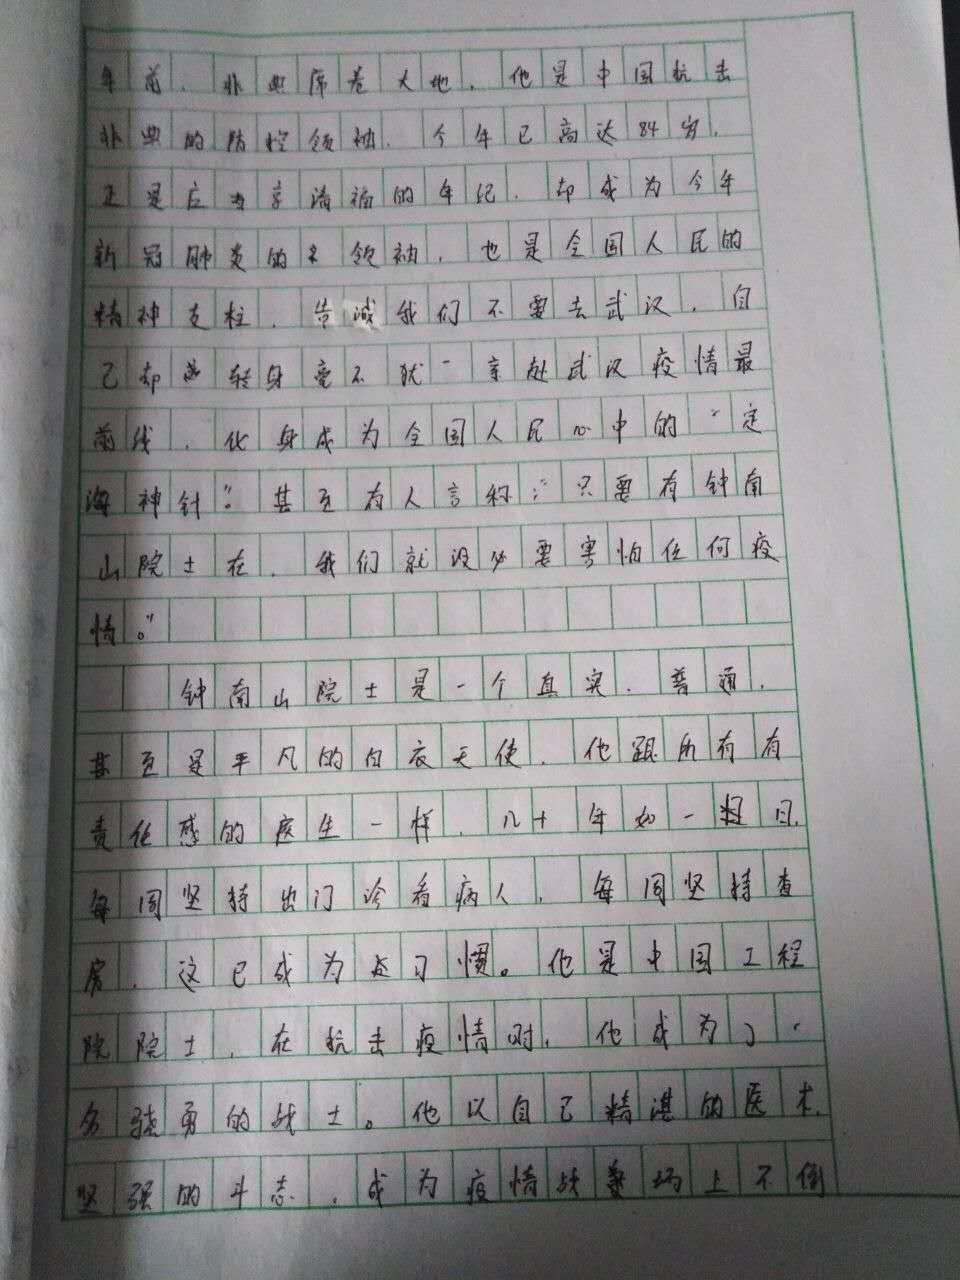 年前，非典席卷大地，他是中国抗击
非典的防控领袖，今年已高达84岁，
正是应当享清福的年记，却成为今年
新冠肺炎的领袖，也是全国人民的
精神支柱，告诫我们不要去武汉，自
己却转身毫不犹亲赴武汉疫情最
前线，化身成为全国人民心中的“定
海神针”。甚至有人言称：“只要有钟南
山院士在，我们就没必要害怕任何疫
情。”
钟南山院士是一个真实、普通，
甚至是平凡的白衣天使，他跟所有有
责任感的医生一样，八十年如一日，
每周坚持出门诊看病人，每周坚持查
房，这已成为习惯。他是中国工程
院院士，在抗击疫情时，他成为了一
名骁勇的战士。他以自己精湛的医术，
坚强的斗志，成为疫情战场上不倒